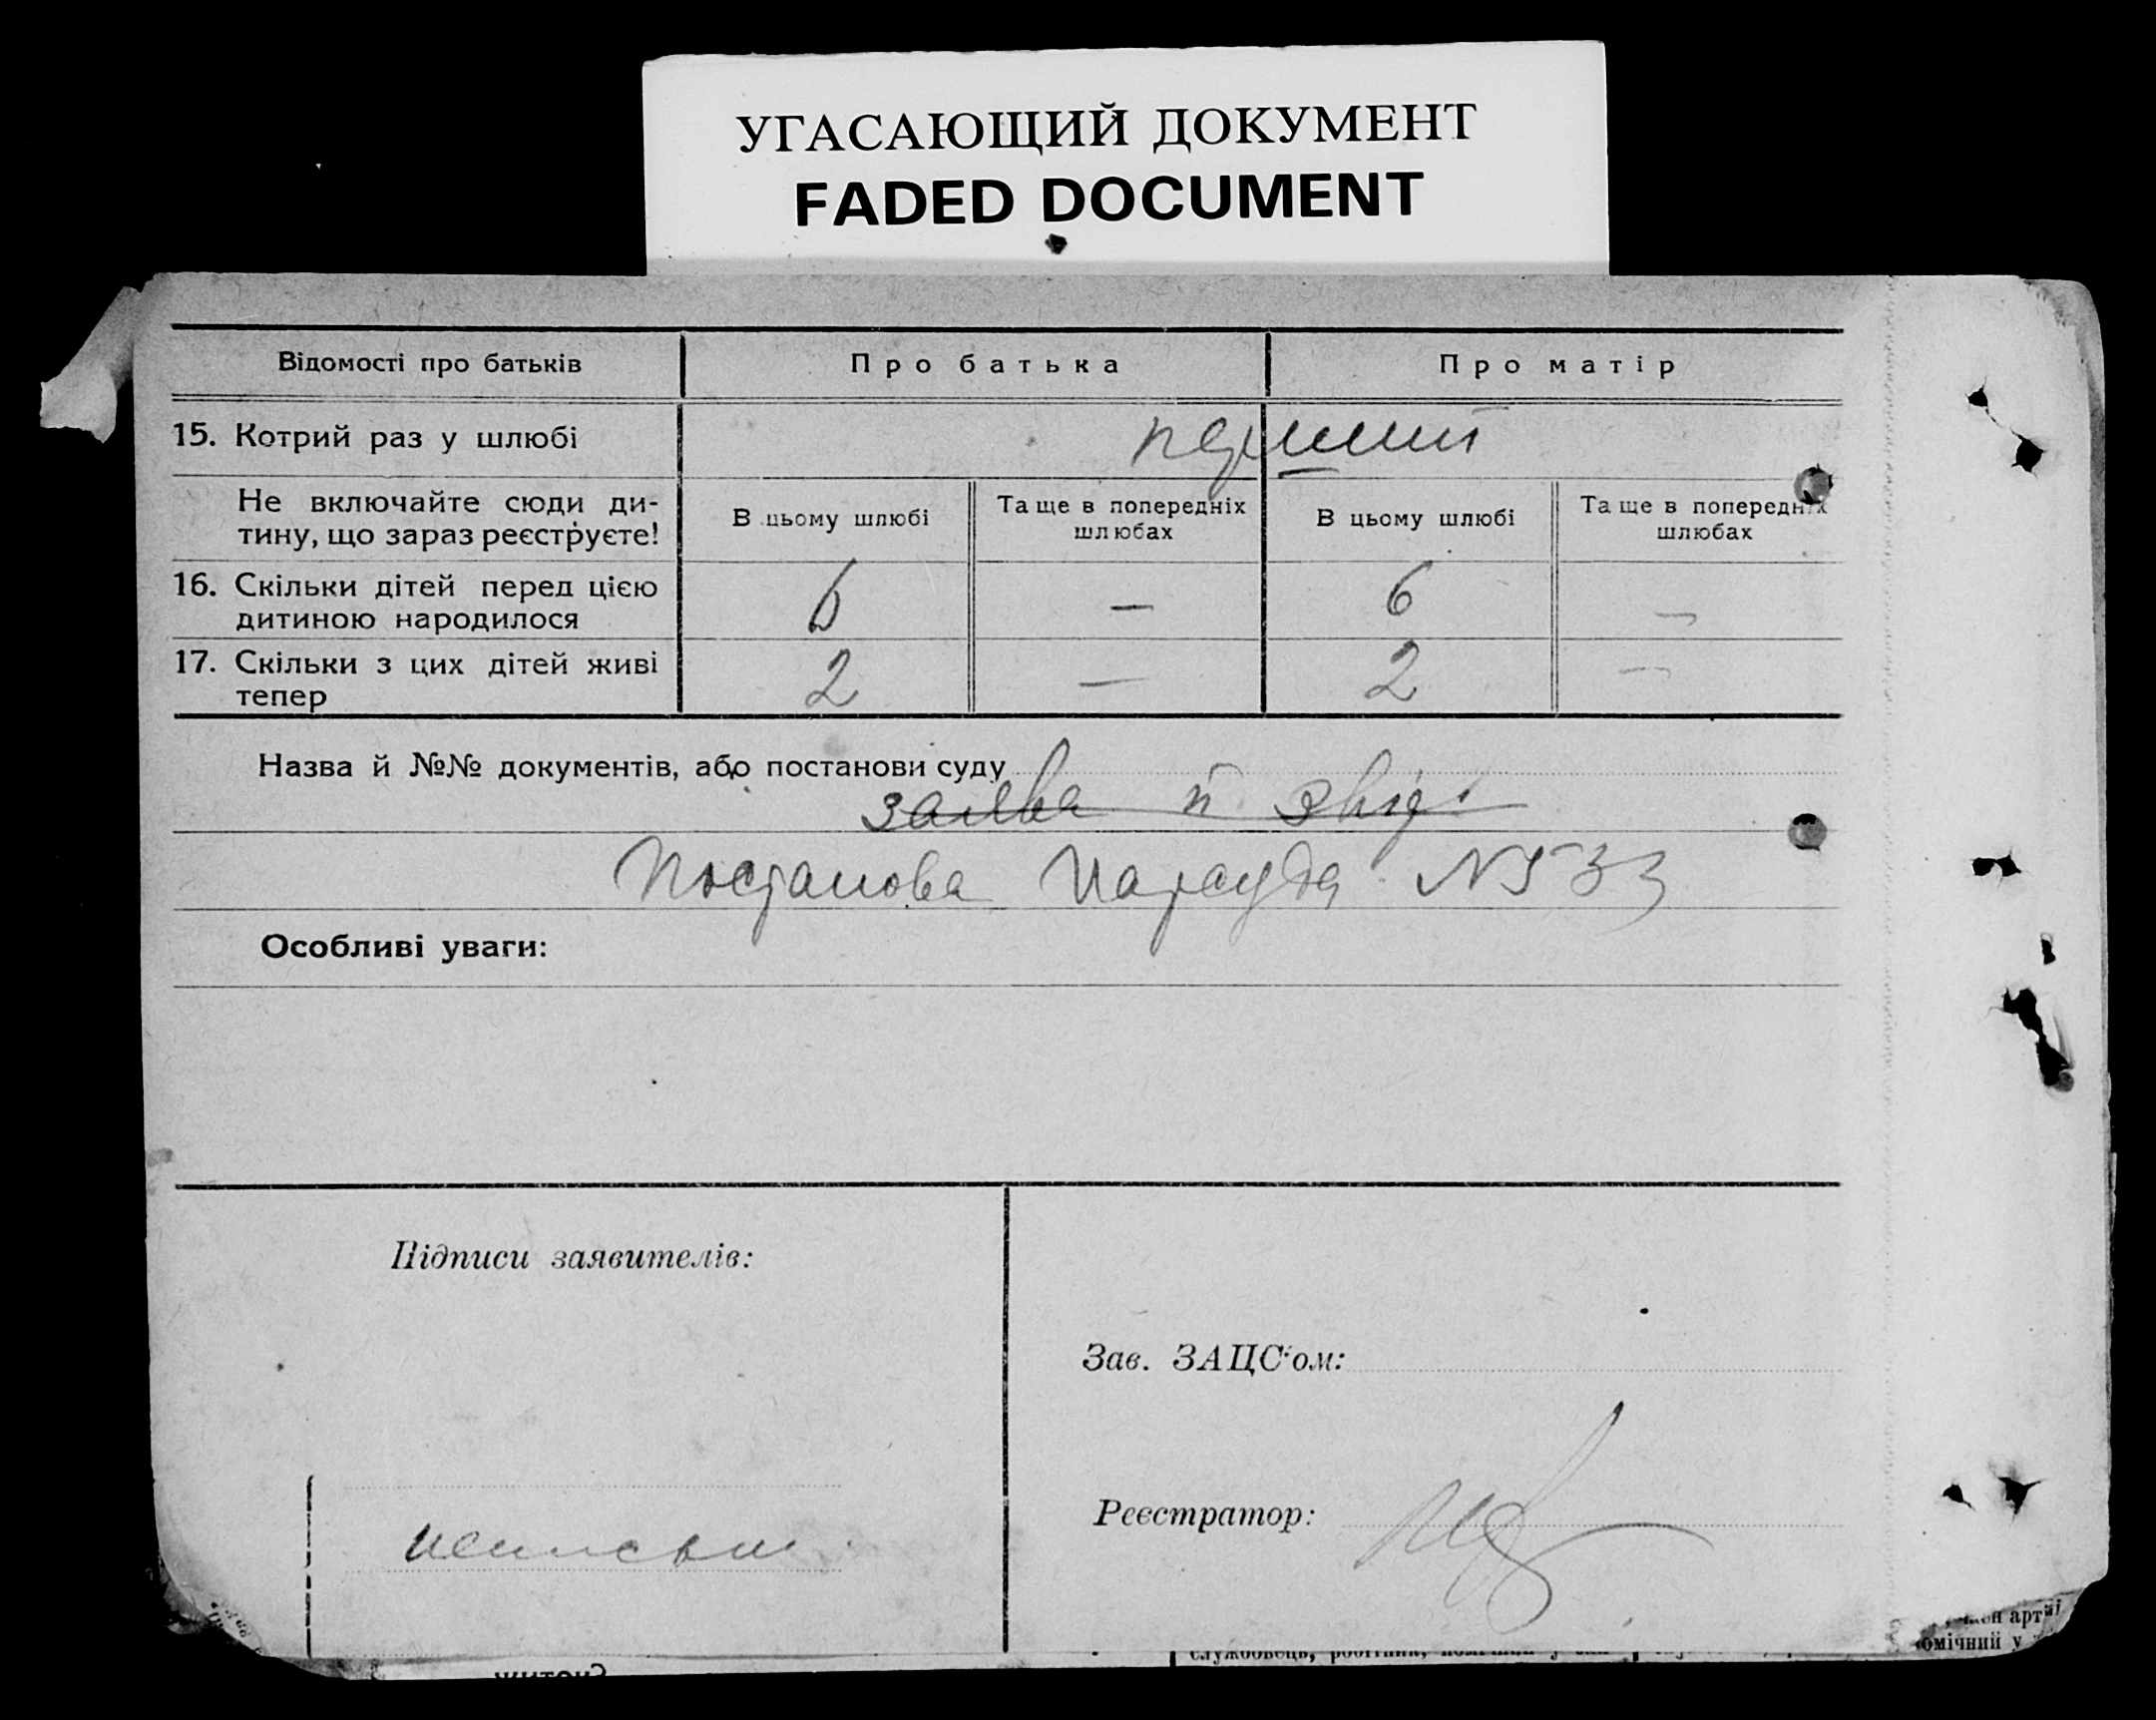 УГАСАЮЩИЙ ДОКУМЕНТ
FADED DOCUMENT
Відомості про батьків
Про батька
Про матір
15. Котрий раз у шлюбі
перший
Не включайте сюди ди-
тину, що зараз реєструєте!
В цьому шлюбі
Та ще в попередніх
шлюбах
В цьому шлюбі
Та ще в попередніх
шлюбах
16. Скільки дітей перед цією
дитиною народилося
6
—
6
—
17. Скільки з цих дітей живі
тепер
2
—
2
—
Назва й №№ документів, або постанови суду
заява й
Постанова Нарсуда N533
Особливі уваги:
Підписи заявителів:
Зав. ЗАЦС'ом:
Реєстратор:
неписьм.
омічний у